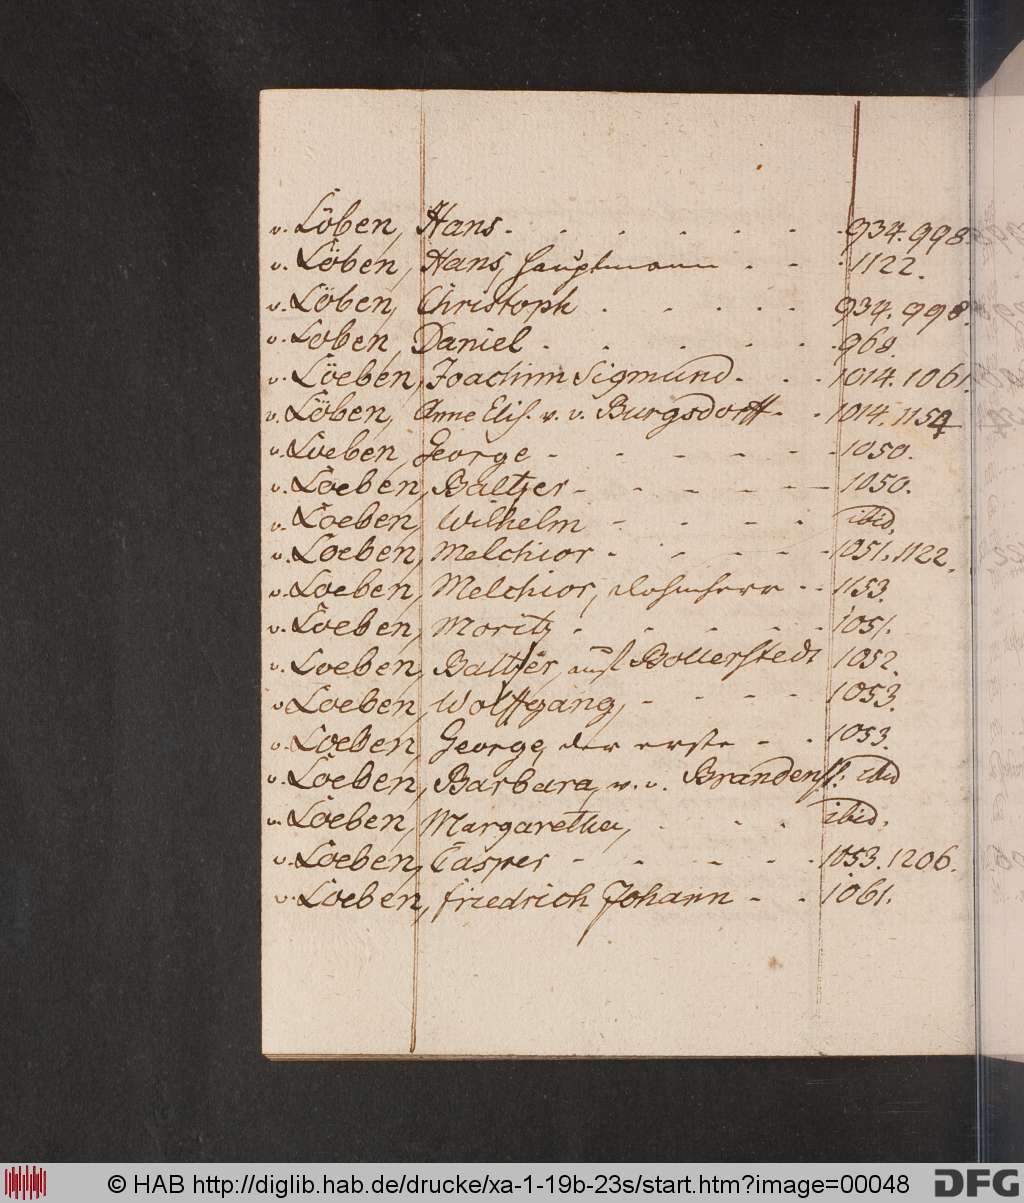 v. Löben, Hans. . . . . . . . 934. 998.
v. Löben, Hans, Hauptmann . - . 1122.
v. Löben, Christoph . . . . . 934. 998.
v. Loben, Daniel . . . . . . . 968.
v. Löeben, Joachim Sigmund. . . 1014. 1061.
v. Löben, Anne Elis. v. v. Burgsdorff. . 1014. 1154
v. Loeben, George - - - - - - - 1050.
v. Loeben, Baltzer - - - - - - 1050.
v. Loeben, Wilhelm - - - . ibid.
v. Loeben, Melchior - . - - - - 1051. 1122.
v. Loeben, Melchior, Dohmherr - - 1153.
v. Loeben, Moritz . - . - - - 1051.
v. Loeben, Baltzer, auf Bollerstedt 1052
v. Loeben, Wolffgang, - - - - - 1053.
v. Loeben, George, der erste - . 1053.
v. Loeben, Barbara, v. v. Brandenst. ibid
v. Loeben, Margaretha, . - - . ibid.
v. Loeben, Casper - - - - - . 1053. 1206.
v. Loeben, Friedrich Johann - . 1061.
© HAB http://diglib.hab.de/drucke/xa-1-19b-23s/start.htm?image=00048
DFG